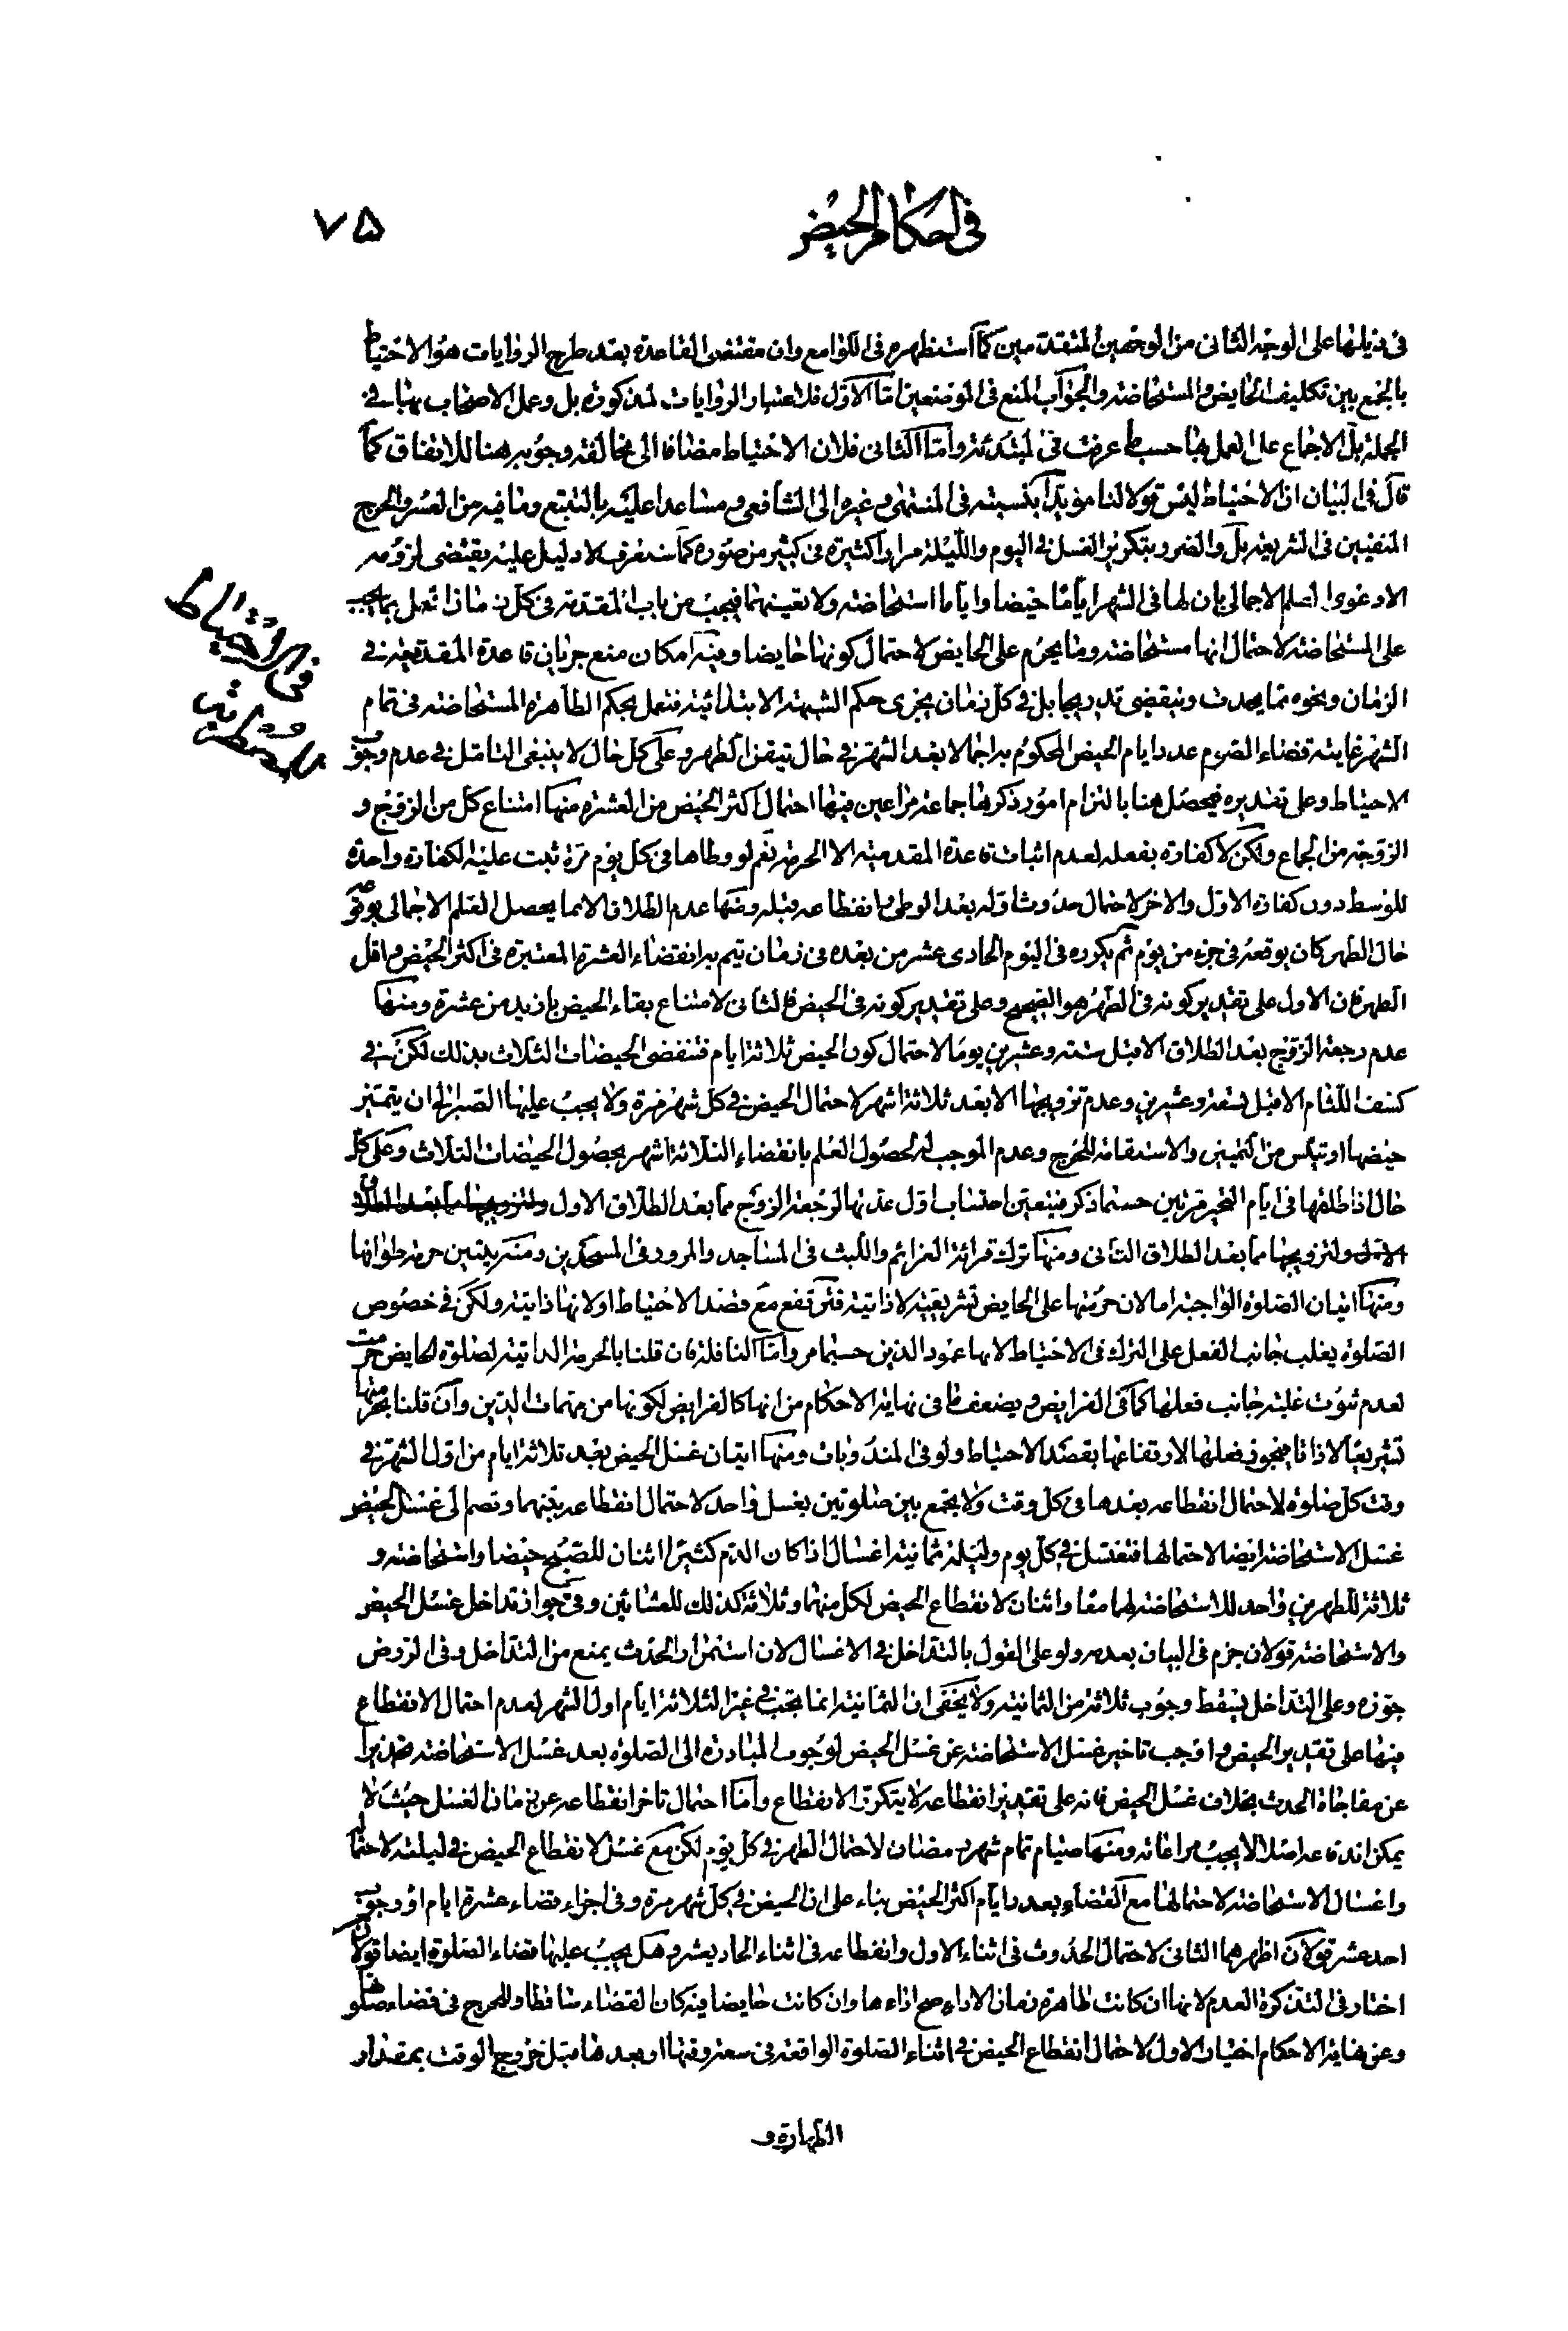 في احكام الحيض
٧۵
في ذيلها على الوجه الثاني من الوجهين المتقدمين كما استظهره في اللوامع وان مقتضى القاعدة بعد طرح الروايات هو الاحتياط
بالجمع بين تكليف الحايض والمستحاضة والجواب المنع في الموضعين امّا الاوّل فلاعتبار الروايات المذكورة بل وعمل الاصحاب بها في
الجملة بل الاجماع على العمل بها حسبما عرفت في المبتدئة وامّا الثاني فلان الاحتياط مضافا الى مخالفة وجوبه هنا للاتفاق كما
قال في البيان ان الاحتياط ليس قولا لنا مؤيّدا بنسبته في المنتهى وغيره الى الشافعي ومساعدا عليه بالتتبع وما فيه من العسر والحرج
المنفيين في الشريعة بل والضرر بتكرير الغسل في اليوم والليلة مرارا كثيرة في كثير من صوره كما ستعرف لا دليل عليه يقتضي لزومه
الا دعوى العلم الاجمالي بان لها في الشهر ايامًا حيضا واياما استحاضة ولا تعينهما فيجب من باب المقدمة في كل زمان ان تعمل بما يجب
على المستحاضة لاحتمال انها مستحاضة وما يحرم على الحايض لاحتمال كونها حايضا وفيه امكان منع جريان قاعدة المقدمية في
الزمان ونحوه مما يحدث وينقضي تدريجا بل في كل زمان يجري حكم الشبهة الابتدائية فتعمل بحكم الطاهرة المستحاضة في تمام
الشهر غايته قضاء الصوم عدد ايام الحيض المحكوم به اجمالا بعد الشهر في حال تيقن الطهر وعلى كل حال لا ينبغي التامّل في عدم وجوب
الاحتياط وعلى تقديره فيحصل هنا بالتزام امور ذكرها جماعة مراعين فيها احتمال اكثر الحيض من العشرة منها امتناع كل من الزوج و
الزوجة من الجماع ولكن لا كفارة بفعله لعدم اثبات قاعدة المقدمية الا الحرمة نعم لو وطاها في كل يوم مرّة ثبت عليه الكفارة واحدة
للوسط دون كفارة الاوّل والاخر لاحتمال حدوث اوله بعد الوطي وانقطاعه قبله ومنها عدم الطلاق الا بما يحصل العلم الاجمالي بوقوعه
حال الطهر كان يوقعه في جزء من يوم ثم يكرره في اليوم الحادي عشر من بعده في زمان يتم به انقضاء العشرة المعتبرة في اكثر الحيض واقل
الطهر فان الاول على تقدير كونه في الطهر هو الصحيح وعلى تقدير كونه في الحيض فالثاني لامتناع بقاء الحيض بازيد من عشرة ومنها
عدم رجعة الزوج بعد الطلاق الا قبل ستة وعشرين يومًا لاحتمال كون الحيض ثلاثة ايام فتنقضي الحيضات الثلاث بذلك لكن في
كشف اللثام الا قبل تسعة وعشرين وعدم تزويجها الا بعد ثلاثة اشهر لاحتمال الحيض في كل شهر مرة ولا يجب عليها الصبر الى ان يتميّز
حيضها او تياس من التميز والاستقامة للحرج وعدم الموجب له لحصول العلم بانقضاء الثلاثة اشهر بحصول الحيضات الثلاث وعلى كلّ
حال اذا طلقها في ايام التحير مرتين حسبما ذكر فيتعين احتساب اوّل عدتها لرجعة الزوج مما بعد الطلاق الاول
ولتزويجها مما بعد الطلاق الثاني ومنها ترك قرائة العزائم واللبث في المساجد والمرور في المسجدين ومنه يتبين حرمة طوافها
ومنها اتيان الصلوة الواجبة اما لان حرمتها على الحايض تشريعية لا ذاتية فترتفع مع قصد الاحتياط او لانها ذاتية ولكن في خصوص
الصلوة يغلب جانب الفعل على الترك في الاحتياط لانها عمود الدين حسبما مر وامّا النافلة فان قلنا بالحرمة الذاتية لصلوة الحايض حرمت
لعدم ثبوت غلبة جانب فعلها كما في الفرايض ويضعف ما في نهاية الاحكام من انها كالفرايض لكونها من مهمات الدين وان قلنا بحرمتها
تشريعًا لا ذاتا فيجوز فعلها لارتفاعها بقصد الاحتياط ولو في المندوبات ومنها اتيان غسل الحيض بعد ثلاثة ايام من اول الشهر في
وقت كل صلوة لاحتمال انقطاعه بعدها في كل وقت ولا يجمع بين صلوتين بغسل واحد لاحتمال انقطاعه بينهما وتضم الى غسل الحيض
غسل الاستحاضة ايضا لاحتمالها فتغتسل في كل يوم وليلة ثمانية اغسال اذا كان الدم كثيرًا اثنان للصبح حيضا واستحاضة و
ثلاثة للظهرين واحد للاستحاضة لهما معًا واثنان لانقطاع الحيض لكل منهما وثلاثة كذلك للعشائين وفي جواز تداخل غسل الحيض
والاستحاضة قولان جزم في البيان بعدمه ولو على القول بالتداخل في الاغسال لان استمرار الحدث يمنع من التداخل وفي الروض
جوّزه وعلى التداخل يسقط وجوب ثلاثة من الثمانية ولا يخفى ان الثمانية انما تجب في غير الثلاثة ايام اول الشهر لعدم احتمال الانقطاع
فيها على تقدير الحيض واوجب تاخير غسل الاستحاضة عن غسل الحيض لوجوب المبادرة الى الصلوة بعد غسل الاستحاضة
عن مفاجاة الحدث بخلاف غسل الحيض فانه على تقدير انقطاعه لا يتكرر الانقطاع وامّا احتمال تاخر انقطاعه عن زمان الغسل حيث لا
يمكن اندفاعه اصلا لا يجب مراعاته ومنها صيام تمام شهر رمضان لاحتمال الطهر في كل يوم لكن مع غسل لانقطاع الحيض في ليلته لاحتماله
واغسال الاستحاضة لاحتمالها مع القضاء بعدد ايام اكثر الحيض بناء على ان الحيض في كل شهر مرة وفي اجزاء قضاء عشرة ايام او وجوب
احد عشر قولان اظهرهما الثاني لاحتمال الحدوث في اثناء الاول وانقطاعه في اثناء الحاديعشر وهل يجب عليها قضاء الصلوة ايضا قولان
اختار في التذكرة العدم لانها ان كانت طاهرة زمان الاداء صح اداءها وان كانت حايضا فيه كان القضاء ساقطا وللحرج في قضاء
وعن نهاية الاحكام اختيار الاول لاحتمال انقطاع الحيض في اثناء الصلوة الواقعة في سعة وقتها او بعدها قبل خروج الوقت بمقدار
الطهارة و